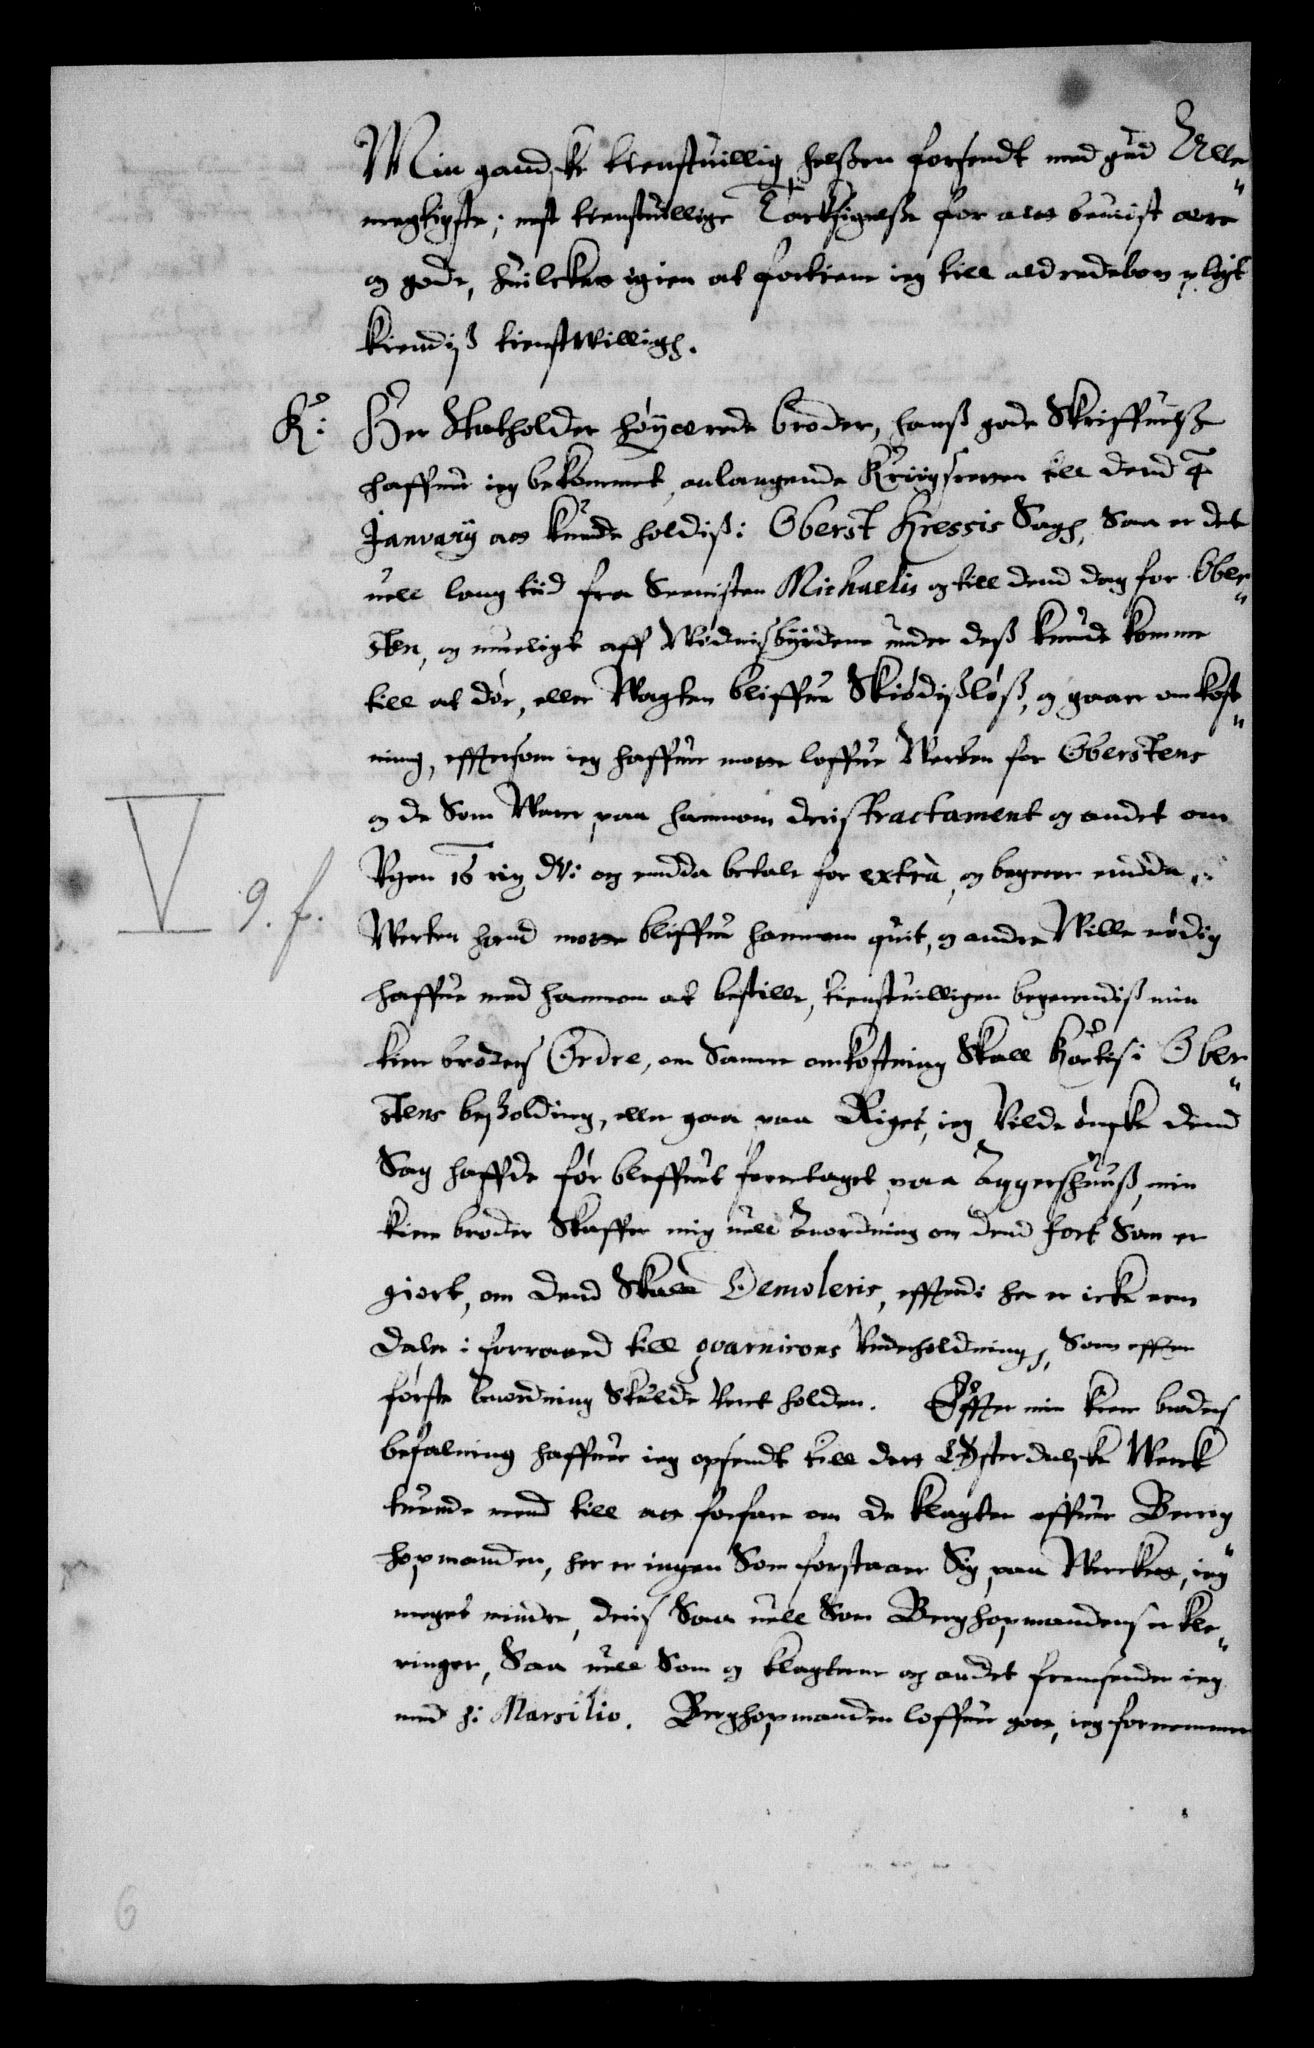 Min gandske tienstuillig helßen forsendt med gud Alle„
megtigste, nest tienstuillige Tacksigelße for alt beuist ære
og gode, huilcket igien at fortiene ieg till aldredebon pligt
kiendiß tienstwilligh.
K: Her Statholder höyærede broder, hanß gode Skriffuelße
haffuer ieg bekommet, anlangende Kriigsretten till dend 4
January att kunde holdiß i Oberst Kressis Sagh, Saa er det
uell lang tiid fra Senisten Michaelis og till dend dag for Ober„
sten, og mueligt aff Widnisbyrdene under deß kunde komme
till at dör, eller Wagten bliffue Skiödißlöß, og gaar omkost„
ning, efftersom ieg haffuer motte loffue Werten for Oberstens
og de Som Waar paa hannom deris tractament og andet om
Vgen 16 rix dlr: og endda betale for extra, og begerer endda
Werten hand motte bliffue hannom quit, og andre Wille nödig
haffue med hannom at bestille, tienstuilligen begerendiß min
kiere broders Ordre, om Samme omkostning Skall kortis i Ober„
stens besholding, eller gaa paa Riget, ieg Vilde önske dend
Sag haffde för bleffuet foretaget paa Aggershuuß, min
kiere broder Skaffer mig uell Anordning om dend fort Som er
giort, om dend Skall Demoleris, effterdi her er icke een
daler i forraad till gvarnisons Vnderholdning, Som effter
förste Anordning Skulde Veret holden. Effter min kiere broders
befalning haffuer ieg opsendt till det Østerdalske Werck
tuende mend till att forfare om de klagter offuer Berrig„
hopmanden, her er ingen Som forstaar Sig paa Wercket, ieg
meget mindre, deris Saa uell Som Berghopmandens erkle„
ringer, Saa uell Som og klagterne og andet fremsender ieg
med H: Marsilio. Berghopmanden loffuer got, ieg fornemmer
V 9. f.
6